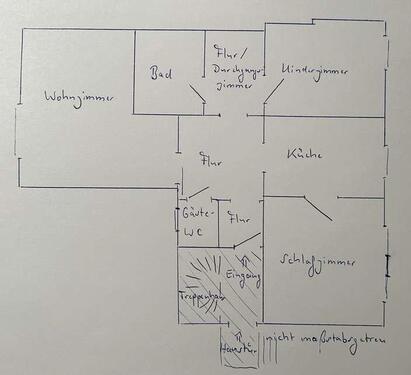 Flur/
Durchgangs-
zimmer
Bad
Kinderzimmer
Wohnzimmer
Flur
Küche
Gäste-
WC
Flur
Eingang
Schlafzimmer
Treppenhaus
Haustür
nicht maßstabsgetreu